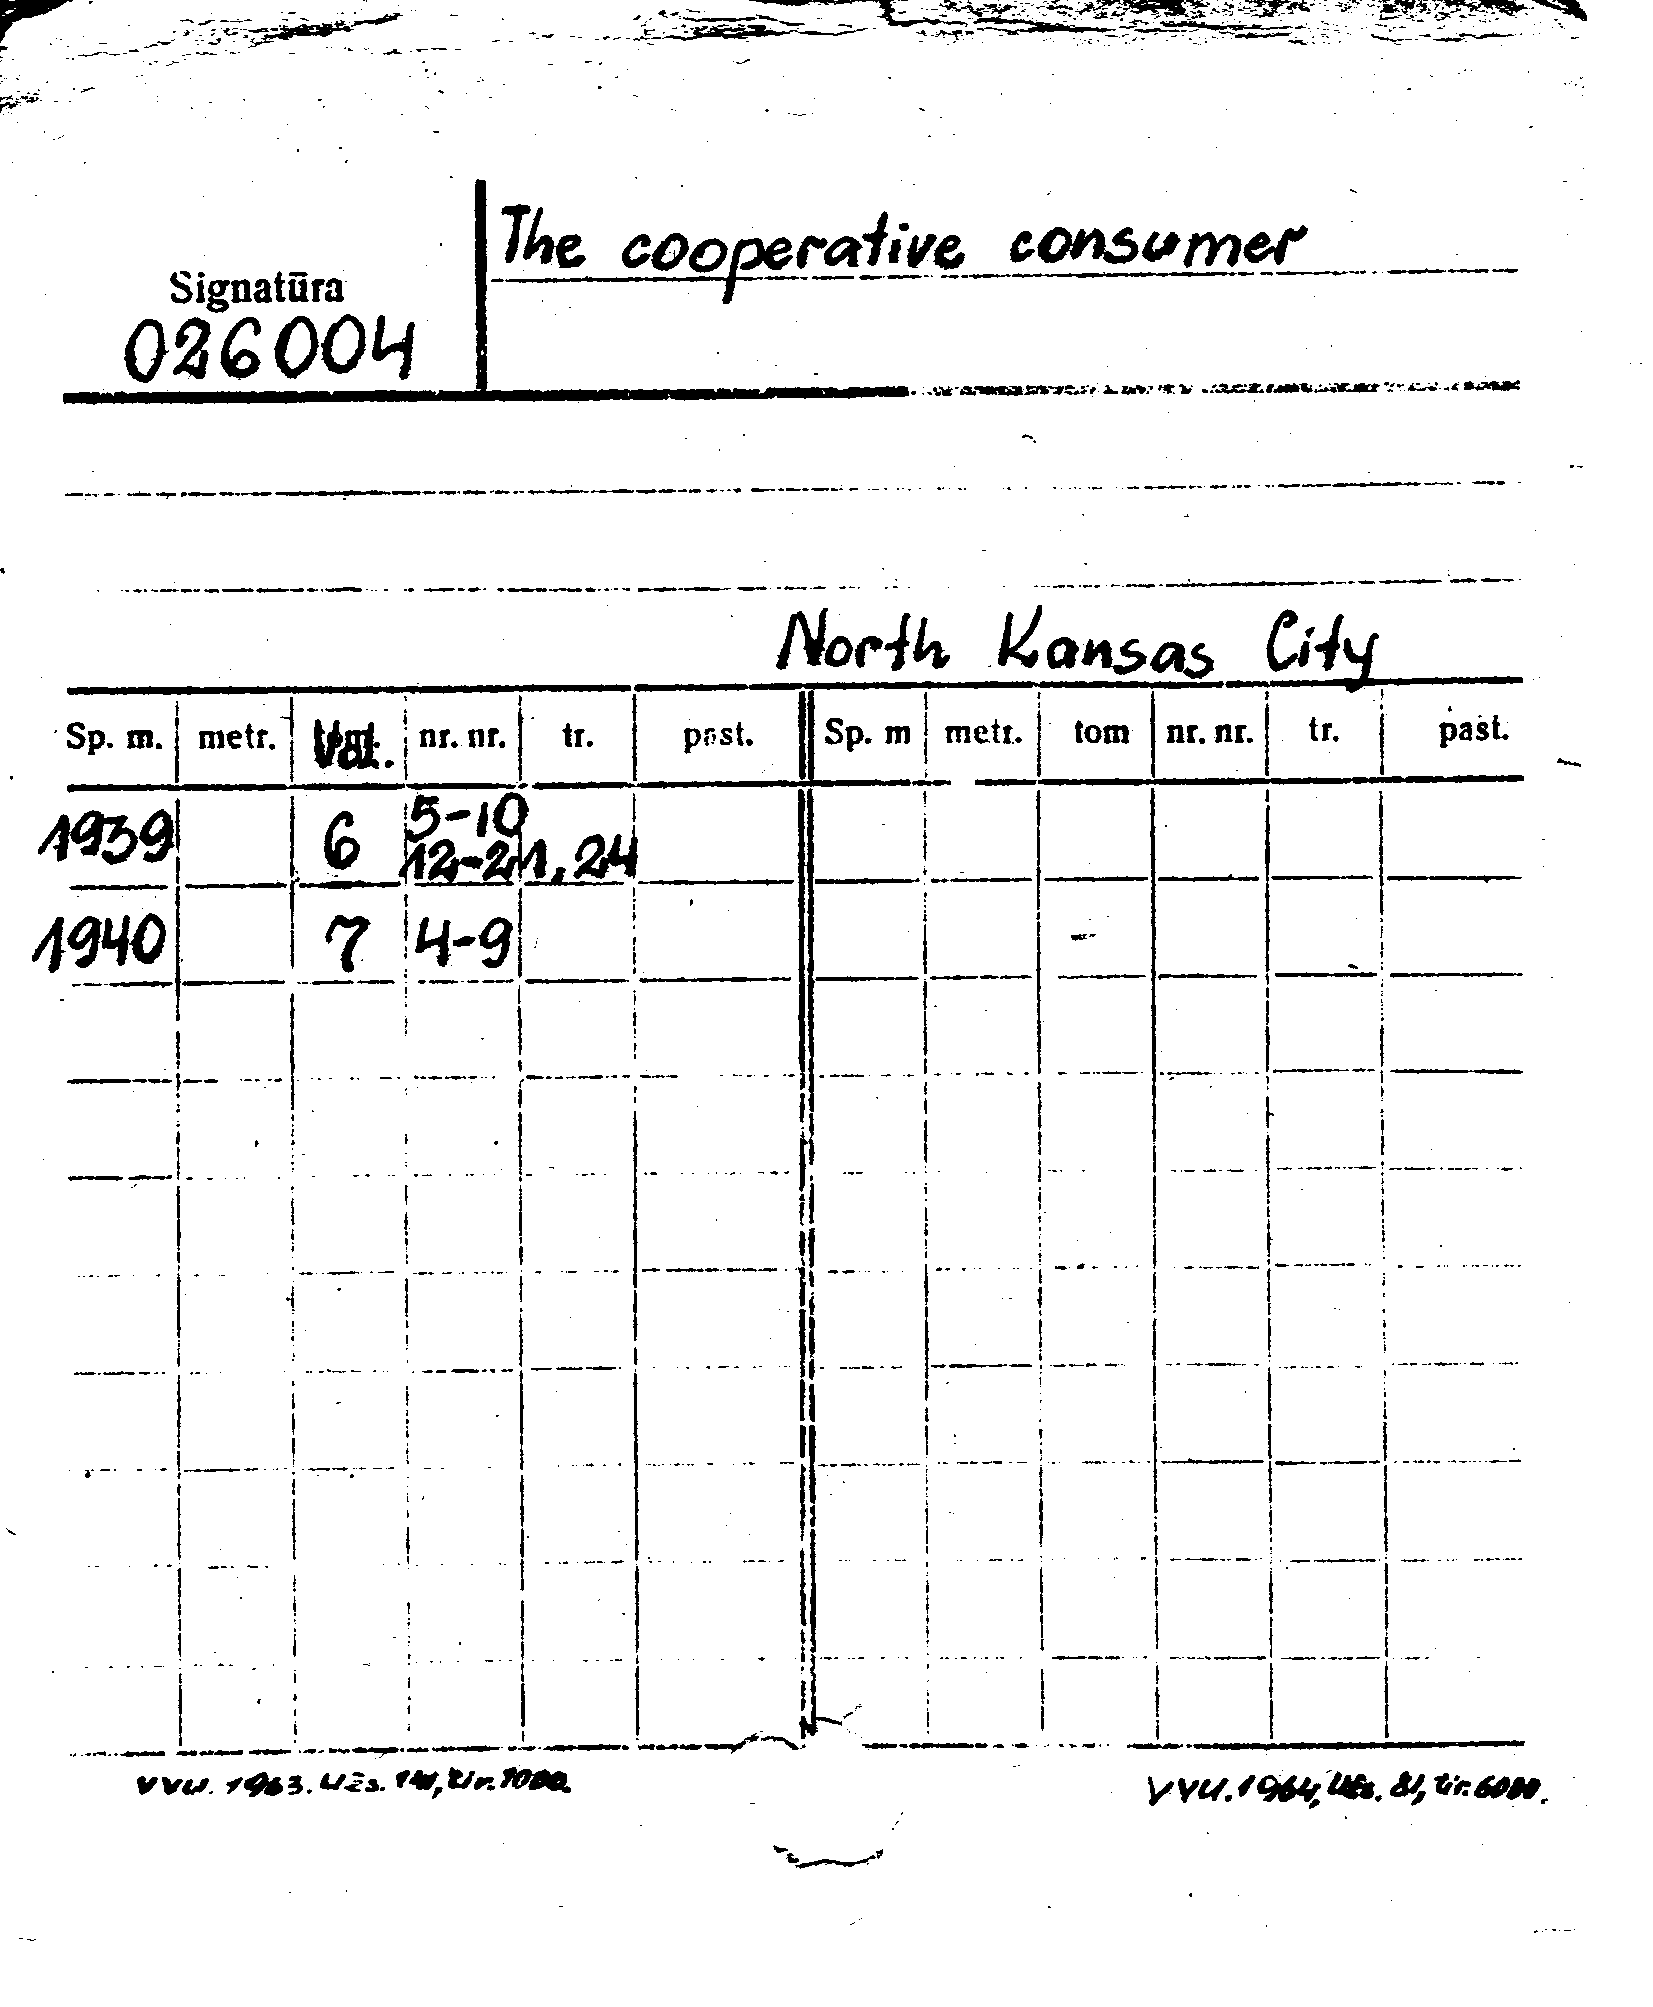 The cooperative consumer
Signatūra
026004
North Kansas City
Sp. m. metr. Vol. nr. nr. tr. past. Sp. m metr. tom nr. nr. tr. past.
1939 6 5-10
12-21, 24
1940 7 4-9
VVU. 1963. Užs. tir. 1000. VVU. 1964, Užs. 81, tir. 6000.